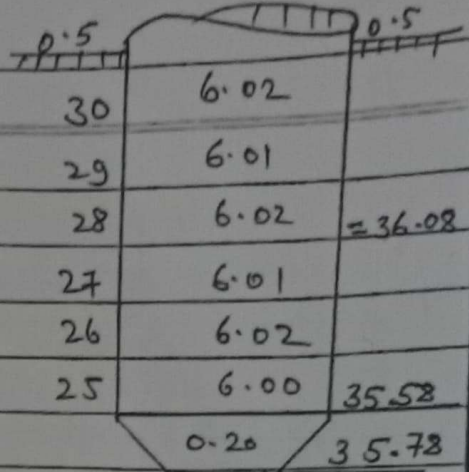 0.5 0.5
30 6.02
29 6.01
28 6.02 = 36.08
27 6.01
26 6.02
25 6.00 35.58
0.20 35.78